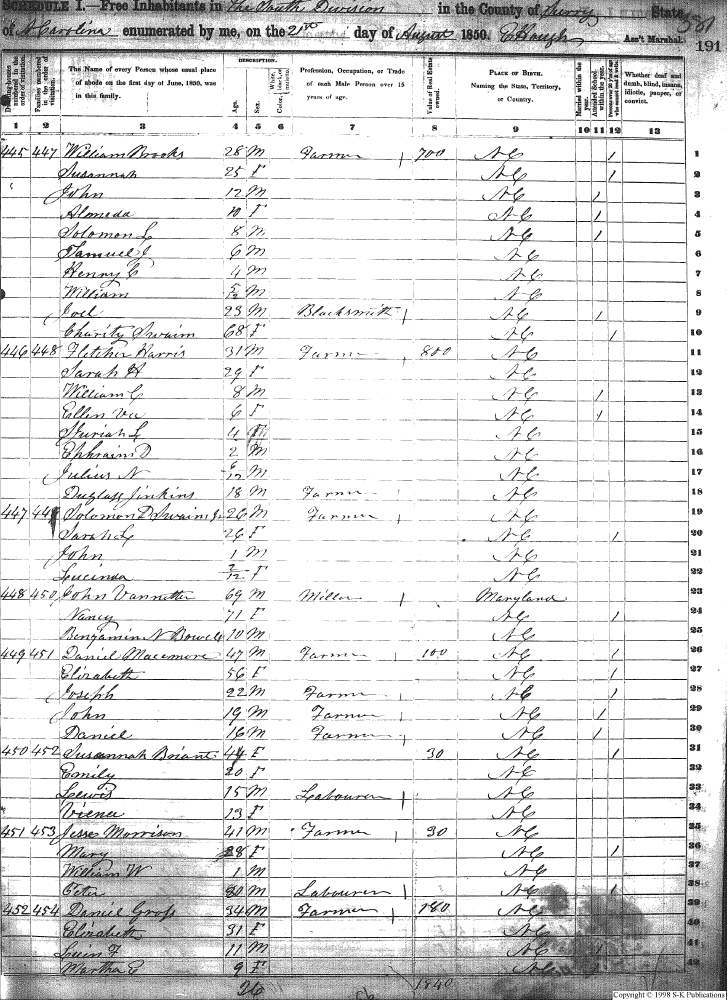 SCHEDULE I.—Free Inhabitants in The South Division in the County of Surry State 381
of N Carolina enumerated by me, on the 21st day of August 1850. C Hough Ass't Marshal. 191
Dwelling-houses numbered in the order of visitation.
Families numbered in the order of visitation.
The Name of every Person whose usual place of abode on the first day of June, 1850, was in this family.
DESCRIPTION.
Age.
Sex.
White, black, or mulatto.
Color
Profession, Occupation, or Trade of each Male Person over 15 years of age.
Value of Real Estate owned.
PLACE OF BIRTH. Naming the State, Territory, or Country.
Married within the year.
Attended School within the year.
Persons over 20 y'rs of age who cannot read & write.
Whether deaf and dumb, blind, insane, idiotic, pauper, or convict.
1 2 3 4 5 6 7 8 9 10 11 12 13
445 447 William Brooks 28 M Farmer 700 NC / 1
Susannah 25 F NC / 2
John 12 M NC / 3
Almeda 10 F NC / 4
Solomon L 8 M NC / 5
Samuel J 6 M NC 6
Henry C 4 M NC 7
William 5/12 M NC 8
Joel 23 M Blacksmith NC / 9
Charity Swaim 68 F NC / 10
446 448 Fletcher Harris 31 M Farmer 800 NC 11
Sarah H 29 F NC 12
William C 8 M NC / 13
Ellen 6 F NC / 14
4 NC 15
Ephraim D 2 M NC 16
Julius N 6/12 M NC 17
Duglass Jinkins 18 M Farmer NC 18
447 449 Solomon D Swaim Jr 26 M Farmer NC 19
Sarah L 26 F NC / 20
John 1 M NC 21
Lucinda 2/12 F NC 22
448 450 John Vannetter 69 M Miller Maryland 23
Nancy 71 F NC / 24
Benjamin N Bowell 10 M NC 25
449 451 Daniel Macemore 47 M Farmer 100 NC / 26
Elizabeth 56 F NC / 27
Joseph 22 M Farmer NC / 28
John 19 M Farmer NC / 29
Daniel 16 M Farmer NC / 30
450 452 Susannah Briant 44 F 30 NC / 31
Emily 20 F NC 32
Lewis 15 M Labourer NC 33
Viena 13 F NC 34
451 453 Jesse Morrison 41 M Farmer 90 NC 35
Mary 28 F NC / 36
William W 1 M NC 37
Peter 80 M Labourer NC / 38
452 454 Daniel Gross 34 M Farmer 180 NC 39
Elizabeth 31 F NC 40
11 M NC / 41
Martha E 9 F NC / 42
26 1840
Copyright © 1998 S-K Publications